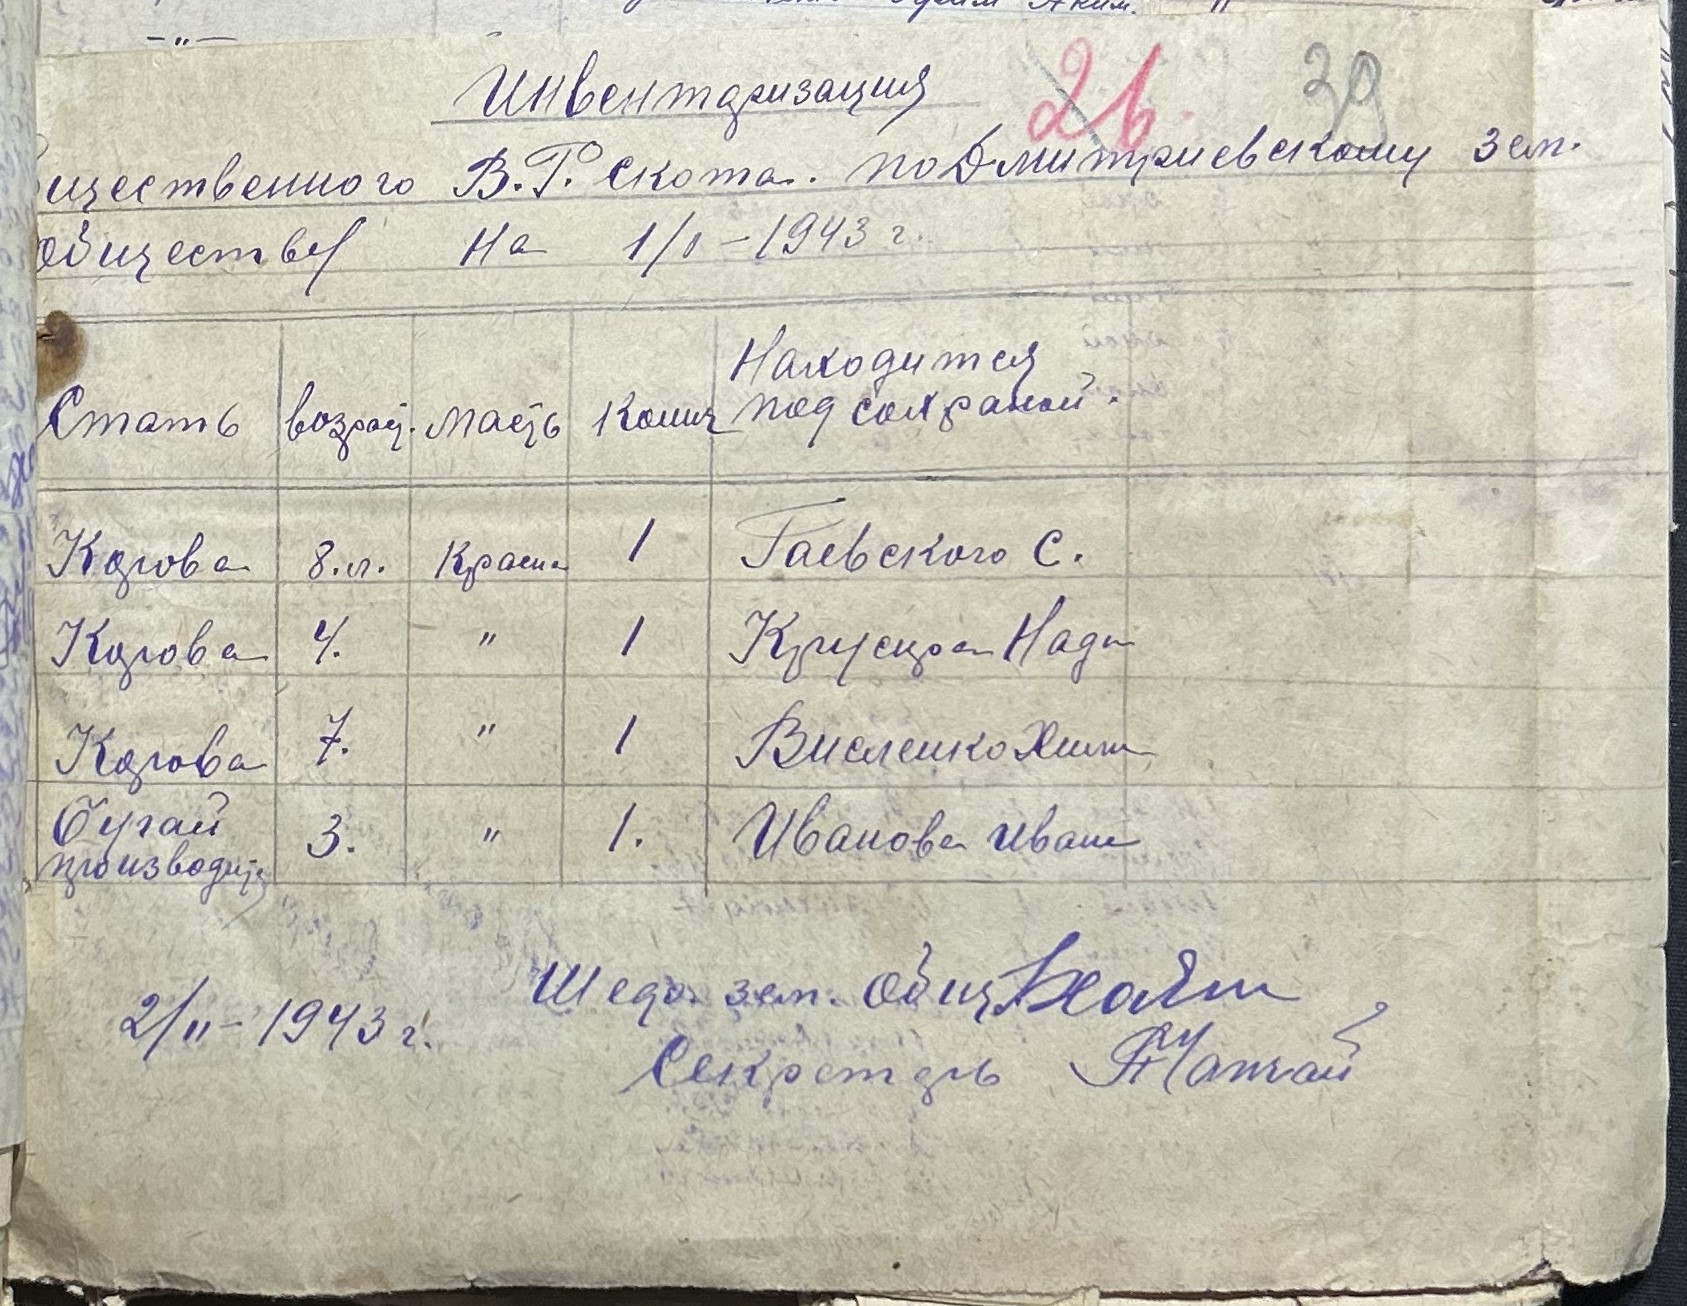 -"-
Инвентаризация
26. 39
щественного В.Р. скота. по Дмитриевскому зем.
обществу на 1/II-1943 г.
Стать возраст. масть Колич Находится
под сохраной.
Корова 8.л. Красн 1 Гаевского С.
Корова 4. " 1 Надя
Корова 7. " 1
бугай
производит 3. " 1. Иванова Иван
2/II-1943 г. зем. общ
Секретарь